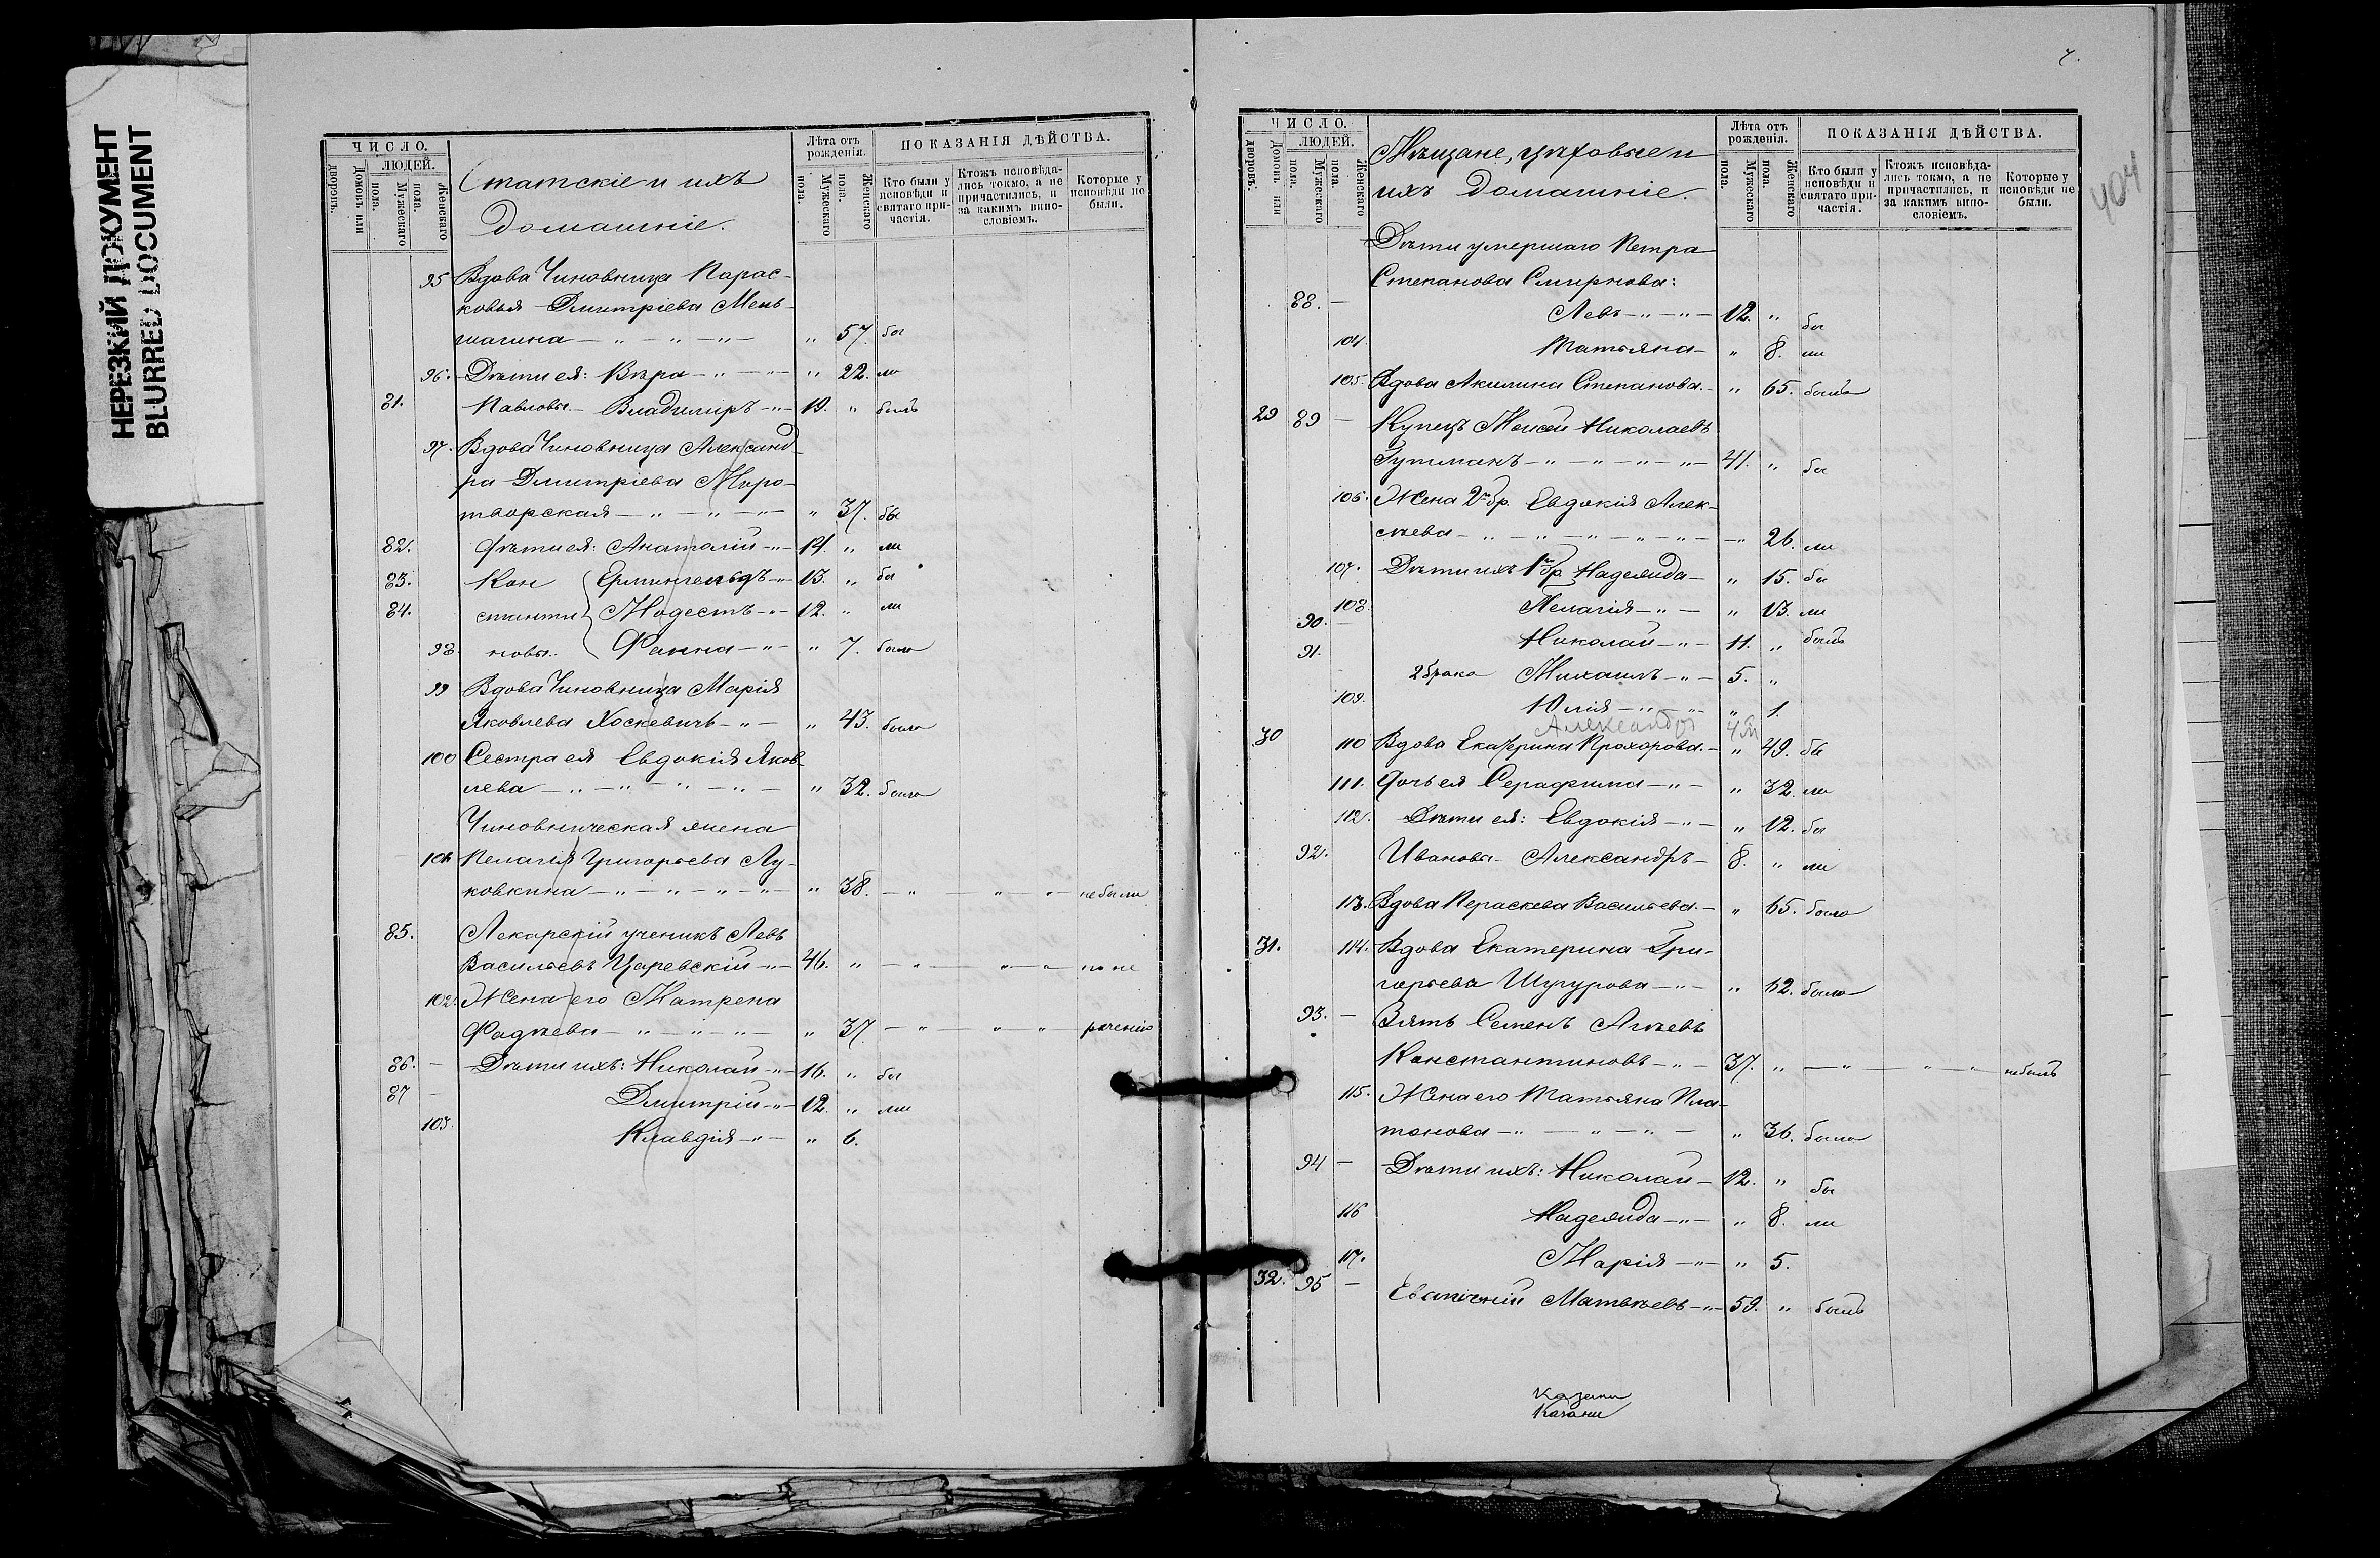 НЕРЕЗКИЙ ДОКУМЕНТ
BLURRED DOCUMENT
ЧИСЛО.
ЛЮДЕЙ.
Домовъ или дворовъ.
Мужескаго пола.
Женскаго пола.
Статскіе и ихъ
домашніе.
Лѣта отъ рожденія.
Мужескаго пола.
Женскаго пола.
ПОКАЗАНІЯ ДѢЙСТВА.
Кто были у исповѣди и святаго причастія.
Ктожъ исповѣдались токмо, а не причастились, и за какимъ винословіемъ.
Которые у исповѣди не были.
95 Вдова Чиновница Парас-
ковья Дмитріева Мень-
шагина — " — " — " — " 57. бы
96. Дѣти ея: Вѣра — " — " — " 22. ли
81. Павловы. — Владиміръ — " — 19. " былъ
97. Вдова Чиновница Александ-
ра Дмитріева Миро-
творская — " — " — " — " 37. бы
82. Дѣти ея: Анатолій — " — 14. " ли
83. Кон Ермингельдъ — " — 13. " бы
84. станти Модестъ — " — 12. " ли
98. новы. Фаина — " — " 7. была
99 Вдова Чиновница Марія
Яковлева Хоскевичъ — " — " 43. была
100 Сестра ея Евдокія Яков-
лева — " — " — " — " — " 32. была
Чиновническая жена
101 Пелагія Григорьева Лу-
ковкина — " — " — " — " — " 38. — " " — " — не были
85. Лекарскій ученикъ Левъ
Васильевъ Царевскій — " — 46. " — " — " — " — по не
102. Жена его Матрена
Фадѣева — " — " — " — " 37. — " " " — раченію
86. — Дѣти ихъ: Николай — " — 16. " бы
87 — Дмитрій — " — 12. " ли
103. Клавдія — " — " 6.
7.
404
ЧИСЛО.
ЛЮДЕЙ.
Домовъ или дворовъ.
Мужескаго пола.
Женскаго пола.
Мѣщане, цѣховые и
ихъ домашніе.
Лѣта отъ рожденія.
Мужескаго пола.
Женскаго пола.
ПОКАЗАНІЯ ДѢЙСТВА.
Кто были у исповѣди и святаго причастія.
Ктожъ исповѣдались токмо, а не причастились, и за какимъ винословіемъ.
Которые у исповѣди не были.
Дѣти умершаго Петра
Степанова Смирнова:
88. — Левъ — " — " — 12. " бы
104. Татьяна — " 8. ли
105. Вдова Акилина Степанова — " 65. была
29 89 — Купецъ Моисей Николаевъ
Гутманъ — " — " — " — " — 41. " бы
106. Жена 2го бр. Евдокія Алек-
сѣева — " — " — " — " — " — " 26. ли
107. Дѣти ихъ 1го бр. Надежда — " 15. бы
108. Пелагія — " — " 13. ли
90. — Николай — " — 11. " былъ
91. — 2 брака Михаилъ — " — 5. "
109. Юлія — " — " — " 1.
Александръ 4 м
30 110 Вдова Екатерина Прохорова — " 49. бы
111. Дочь ея Серафима — " — " 32. ли
112. Дѣти ея: Евдокія — " — " 12. бы
92. Ивановы — Александръ — 8. " ли
113. Вдова Параскева Васильева — " 65. была
31. 114. Вдова Екатерина Гри-
горьева Шугурова — " — " 62. была
93. — Зять Семенъ Агѣевъ
Константиновъ — " — 37. " — " — " — " — не былъ
115. Жена его Татьяна Пла-
тонова — " — " — " — " 36. была
94 — Дѣти ихъ: Николай — 12. " бы
116 Надежда — " — " 8. ли
117. Марія — " — " 5.
32. 95 — Матвѣевъ — " — 59. " былъ
Казани
Казани